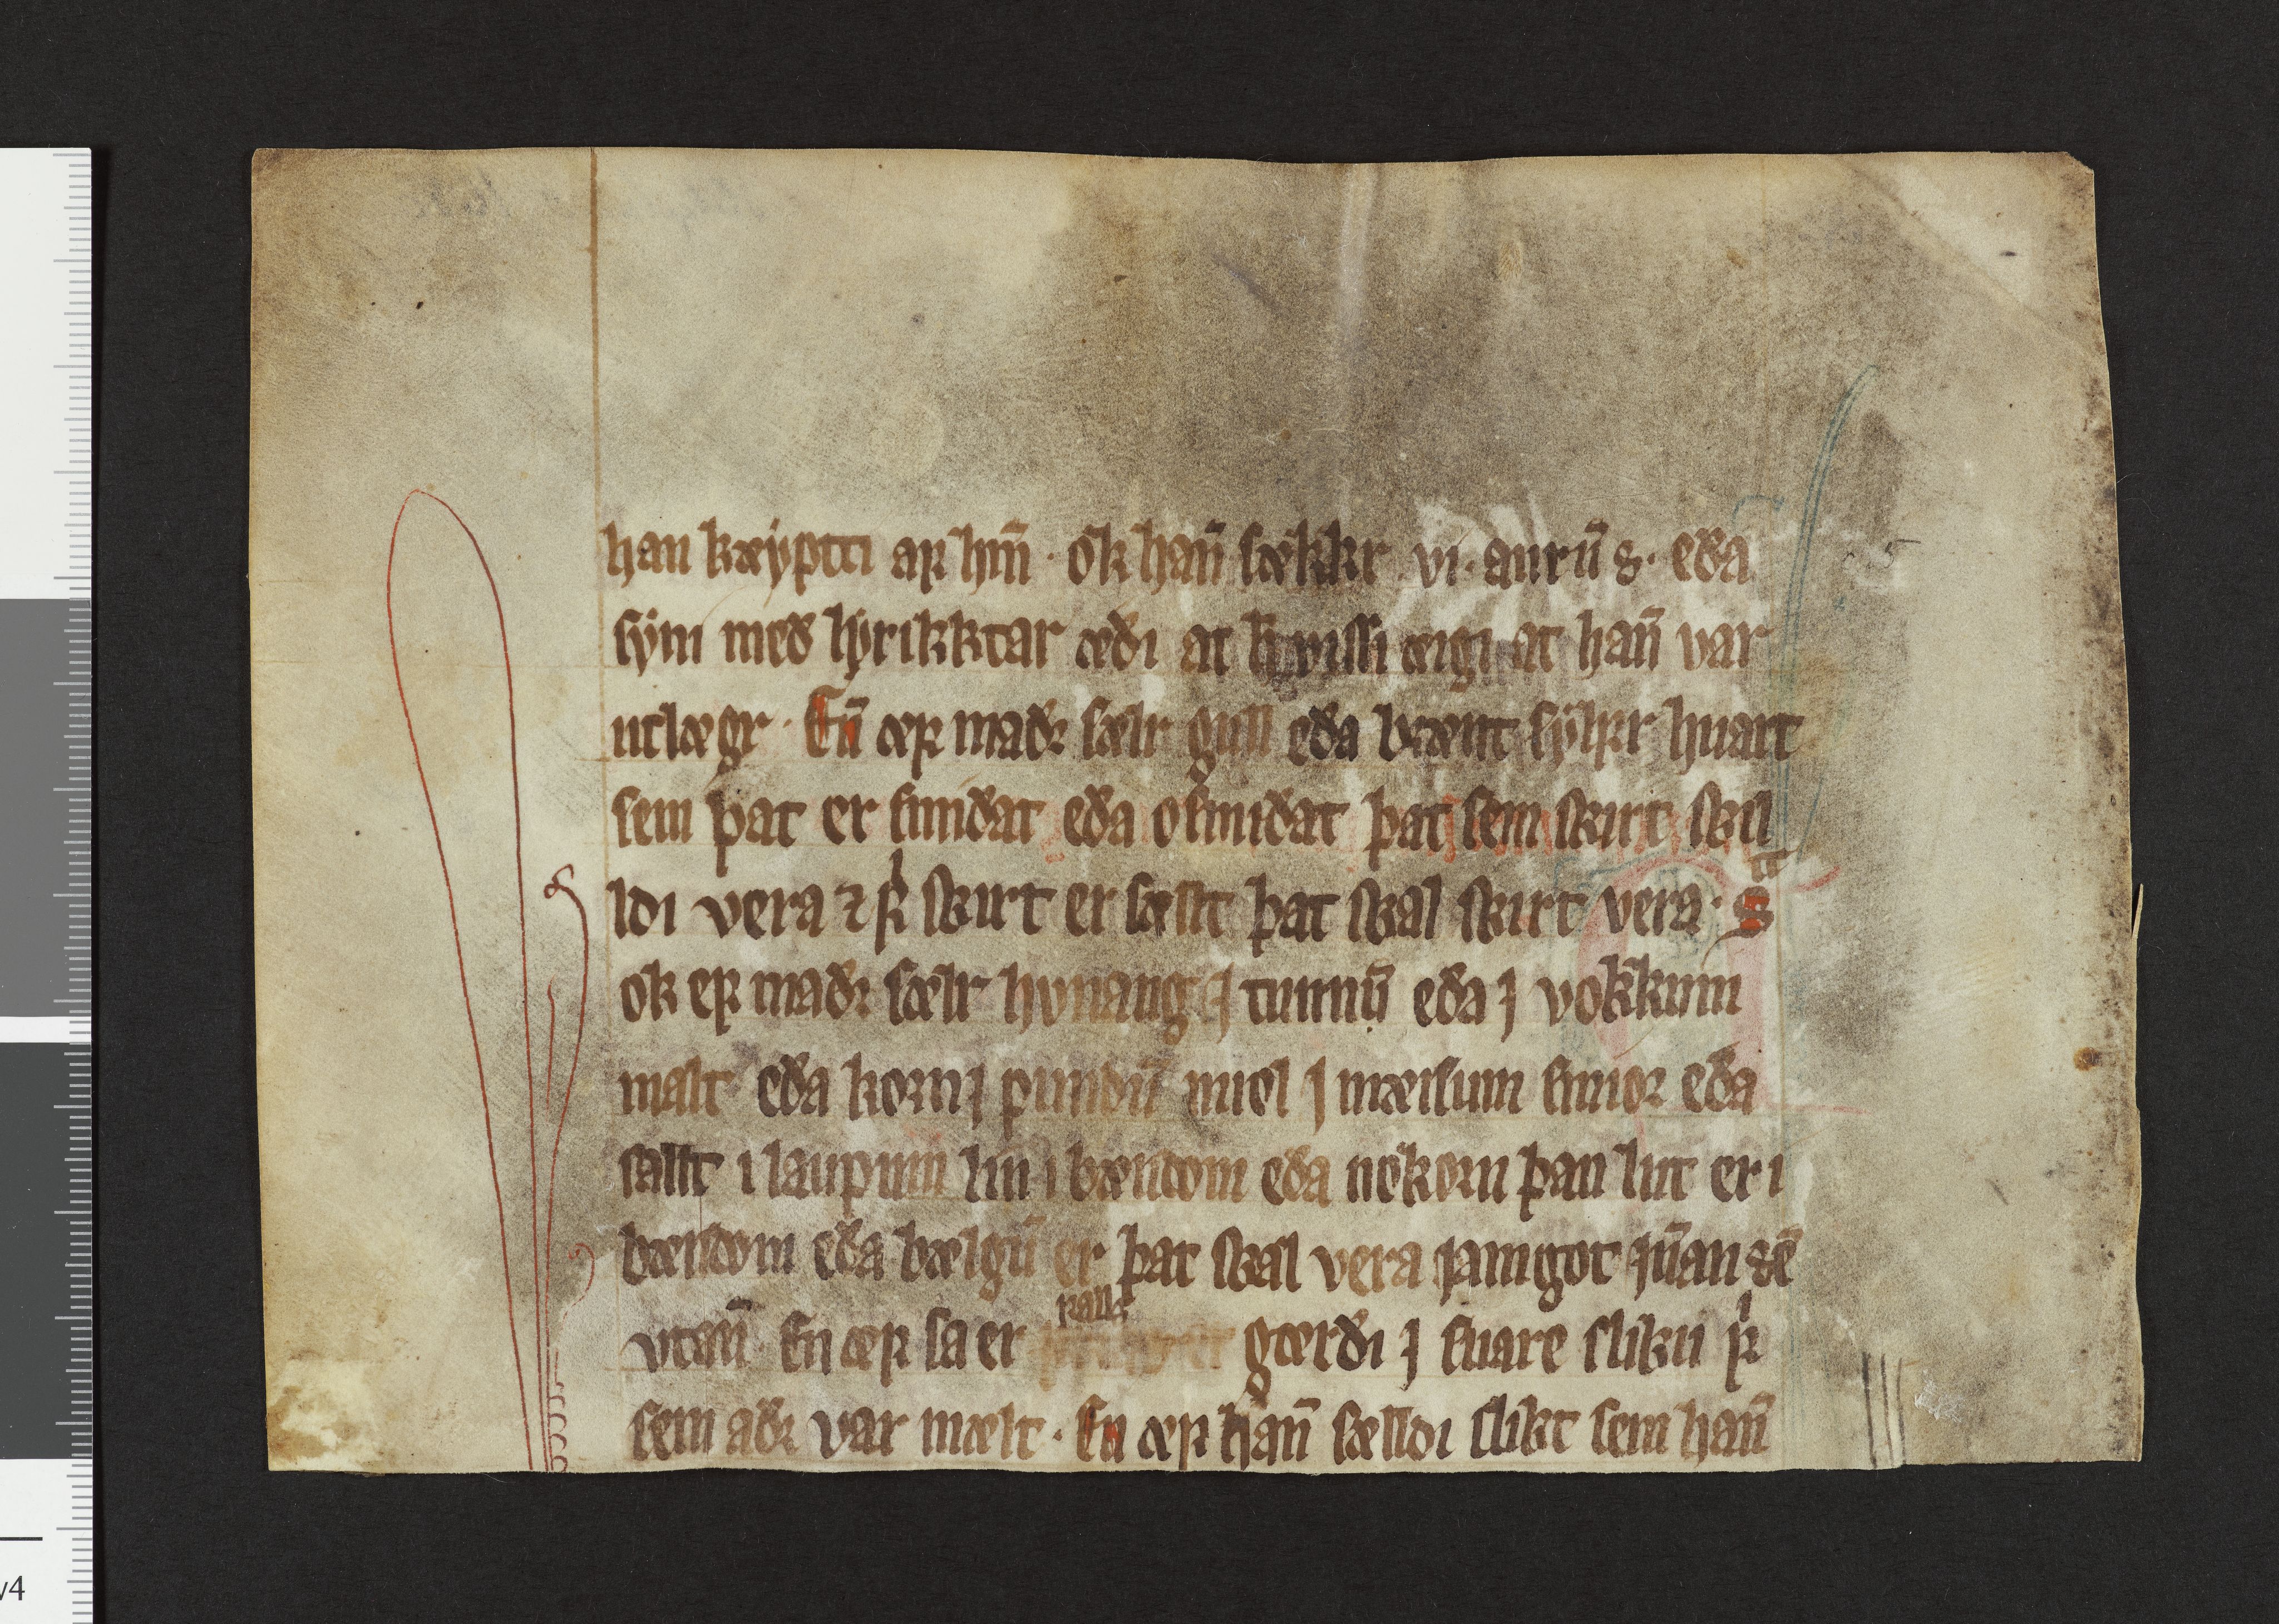 han kæyptti af hm̄ · ok han̄ sækkr vi · aurū s · eða
sýni með lýrikktar æiði at h vissi æigi at han̄ var
utlægr · En̄ æf maðr sælr gull eða brent sýlfr huart
sem þat er smidat eða osmidat þat sem skirt skil
ldi vera ⁊ f skirt er sællt þat skal skirt vera · s
ok ef maðr sælr hunang j tunnū eða j vokkum
malt eða korn j pundū miol j mæisum smior eða
sallt i laupum lin i bændom eða nokorn þan lut er i
bændom eða bælgū er þat skal vera iamgot jn̄an sē
vtan̄ En æf sa er falls gærdi j suare sliku f
sem aðr var mælt · En æf han̄ sælldi slikt sem han̄
v4